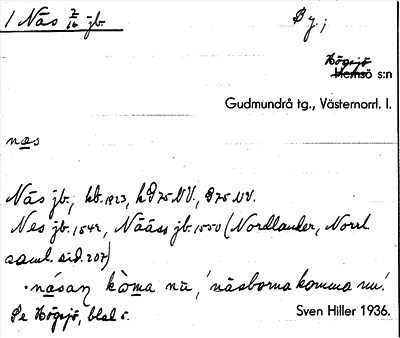 1 Näs 7/16 jb. By;
Högsjö
Hemsö s:n
Gudmundrå tg., Västernorrl. l.
nas
Näs jb., kb. 1923, kP75NV., P75NV.
Nes jb. 1542, Nääss jb. 1550 (Nordlander, Norrl.
saml. sid. 207)
·násaṇ kòma nū, 'näsborna komma nu'.
Se Högsjö, blad 5.
Sven Hiller 1936.